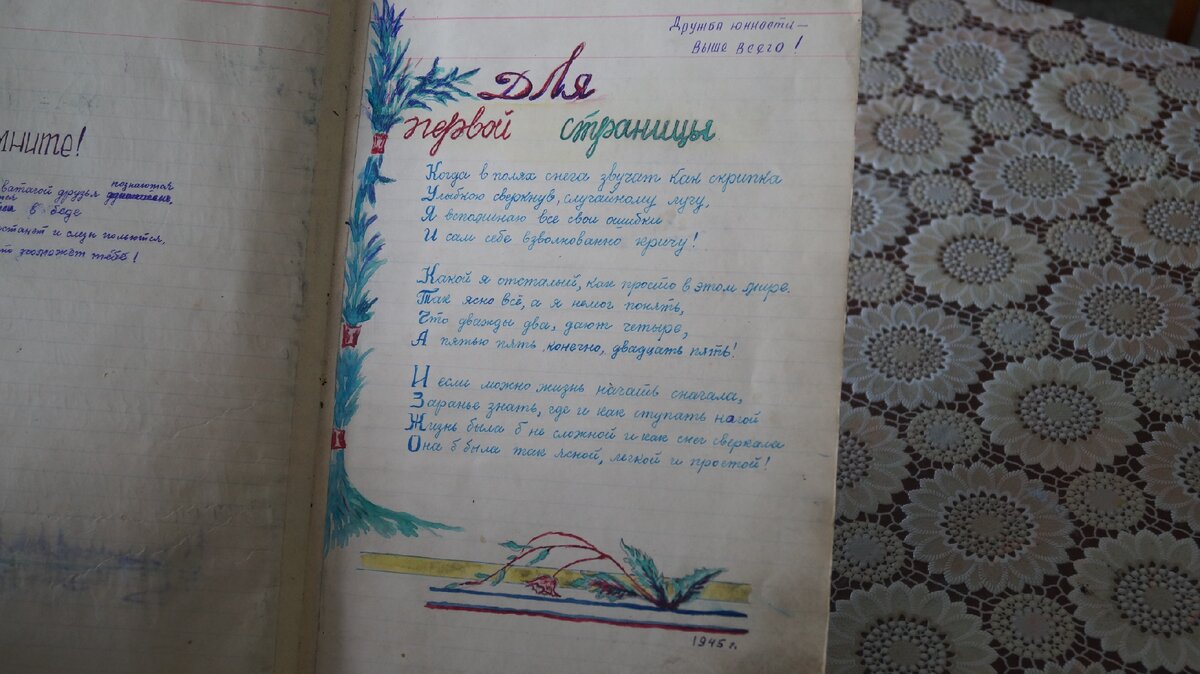 мните!
ватагой друзья познаются
в беде
и слезы польются,
поможет тебе!
Дружба юности –
выше всего!
Для
первой страницы
Когда в полях снега звучат как скрипка
Улыбкою сверкнув, случайному лучу,
Я вспоминаю все свои ошибки
И сам себе взволнованно кричу!
Какой я отсталый, как просто в этом мире.
Так ясно всё, а я немог понять,
Что дважды два, дают четыре,
А пятью пять конечно, двадцать пять!
И если можно жизнь начать сначала,
Заранье знать, где и как ступать ногой
Жизнь была б не сложной и как снег сверкала
Она б была так ясной, легкой и простой!
1945 г.